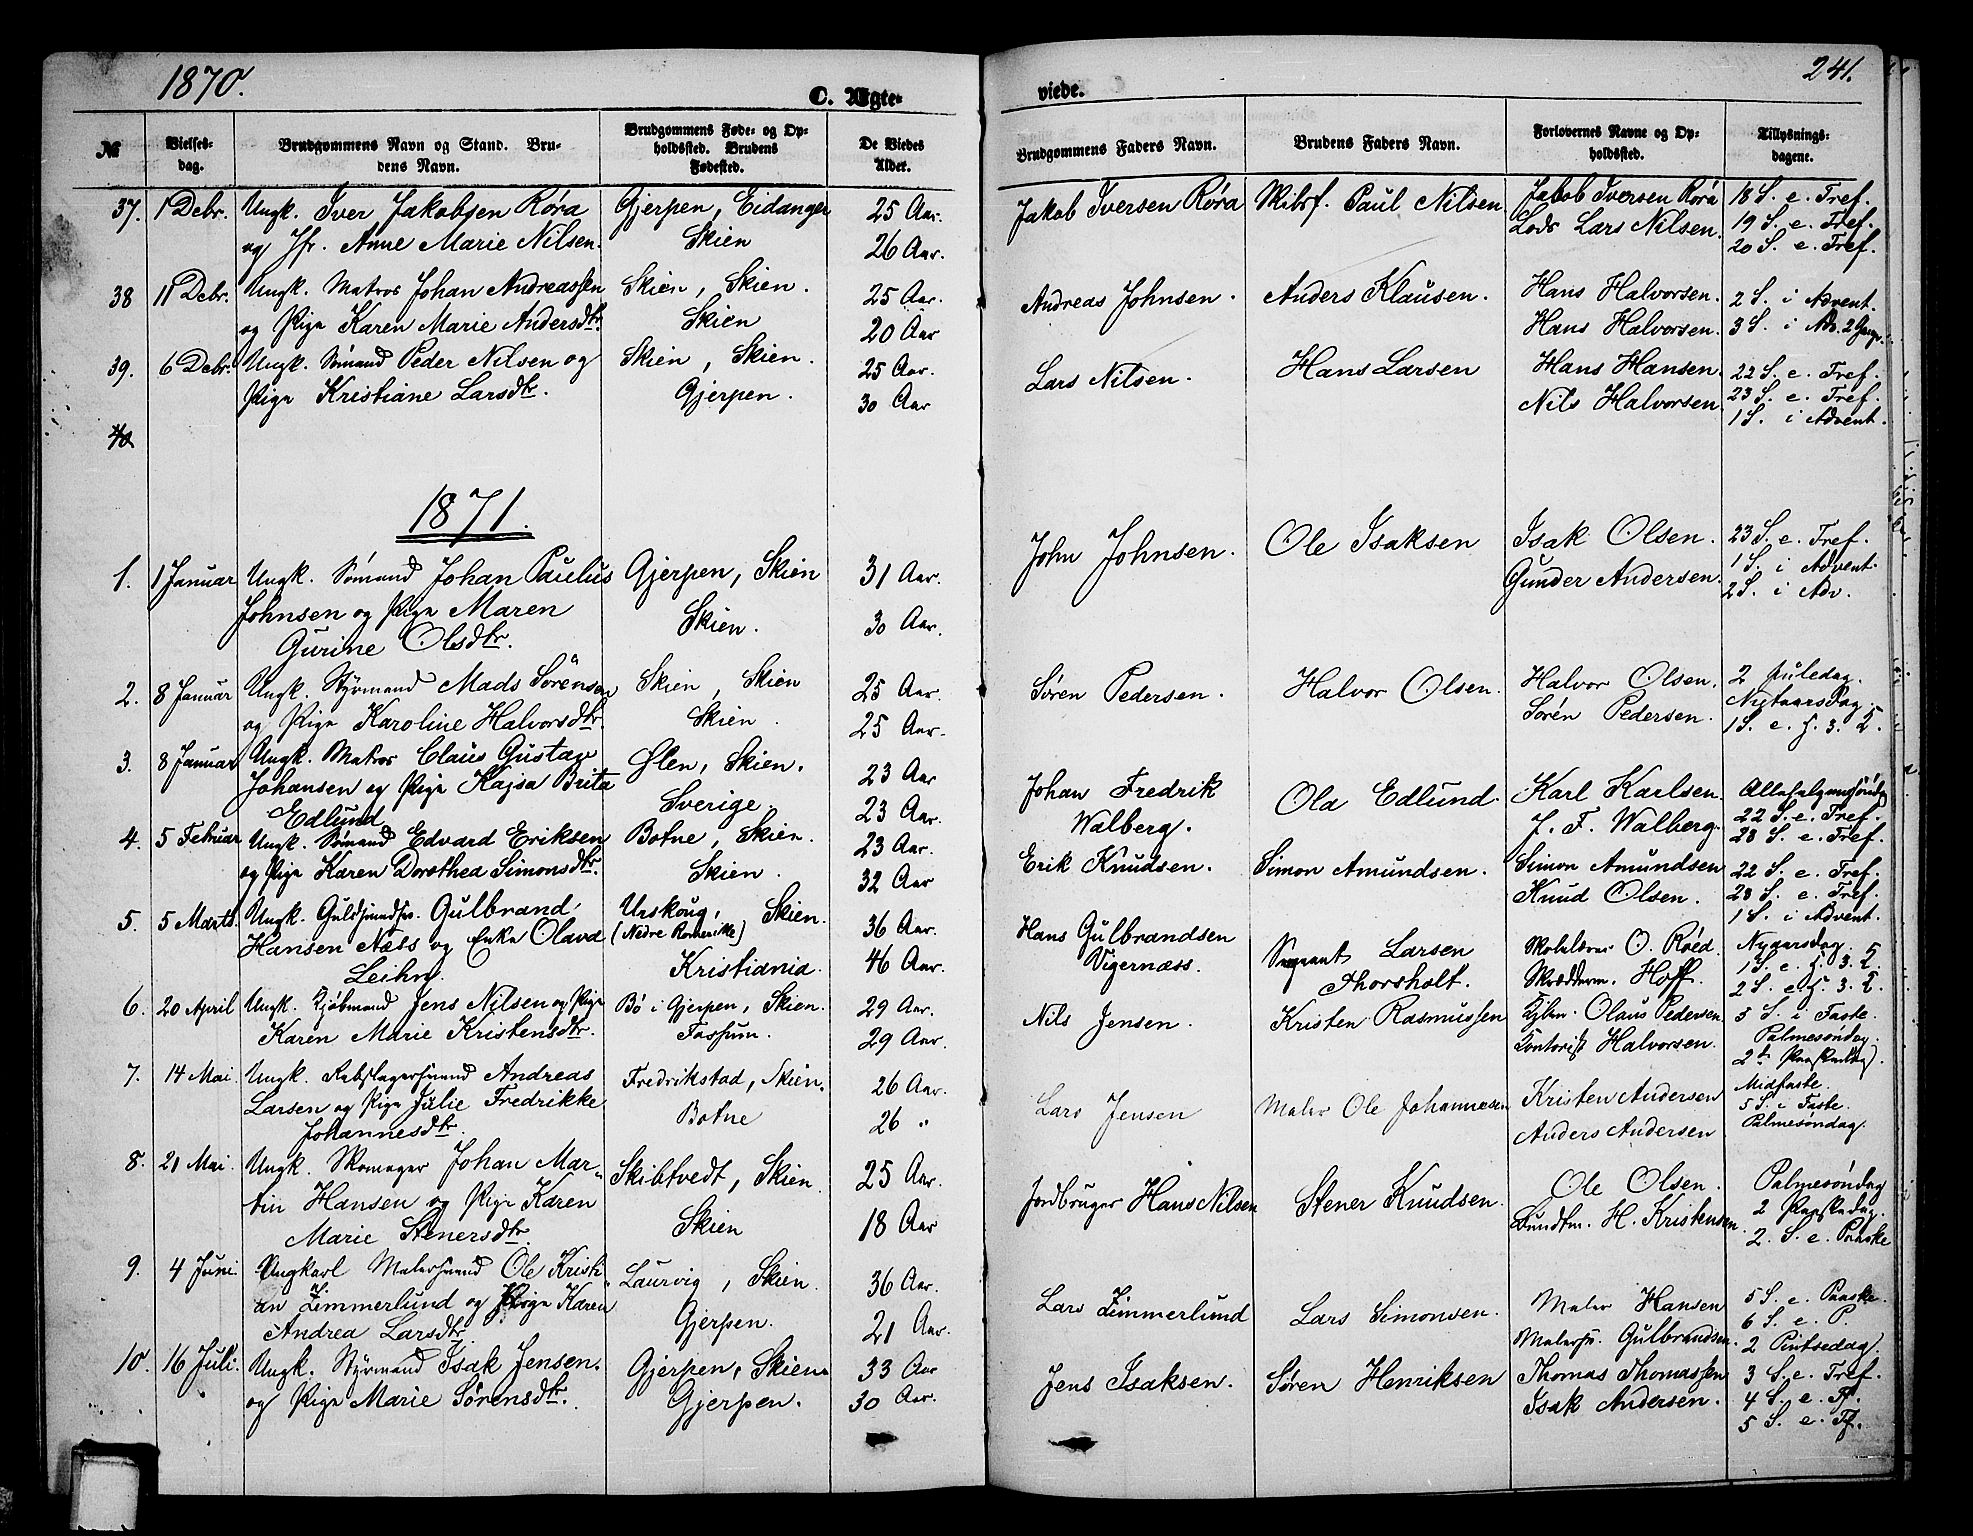 1870.
C. Ægte-
№
Vielses-
dag.
Brudgommens Navn og Stand. Bru-
dens Navn.
Brudgommens Føde- og Op-
holdssted. Brudens
Fødested.
De Viedes
Alder.
37. 1 Debr. Ungk. Iver Jakobsen Røra Gjerpen, Eidanger 25 Aar.
og Jfr. Anne Marie Nilsen. Skien 26 Aar.
38 11 Debr. Ungk. Matros Johan Andreassen Skien, Skien. 25 Aar.
og Pige Karen Marie Andersdtr. Skien 20 Aar
39. 6 Debr. Ungk. Sømand Peder Nilsen og Skien, Skien. 25 Aar.
Pige Kristiane Larsdtr. Gjerpen. 30 Aar
40
1871.
1. 1 Januar Ungk. Sømand Johan Paulus Gjerpen, Skien 31 Aar.
Johnsen og Pige Maren Skien. 30 Aar.
Gurine Olsdtr.
2. 8 Januar Ungk. Styrmand Mads Sørensen Skien, Skien 25 Aar.
og Pige Karoline Halvorsdtr. Skien. 25 Aar.
3. 8 Januar Ungk. Matros Claus Gustav Ølen, Skien. 23 Aar
Johansen og Pige Kajsa Brita Sverige. 23 Aar.
Edlund
4. 5 Februar Ungk. Sømand Edvard Eriksen Botne, Skien. 23 Aar.
og Pige Karen Dorothea Simonsdtr. Skien. 32 Aar
5. 5 Marts Ungk. Guldsmedsv. Gulbrand Urskoug, Skien. 36 Aar.
Hansen Næss og Enke Olava (Nedre Romerike)
Leihny. Kristiania. 46 Aar.
6. 20 April Ungk. Kjøbmand Jens Nilsen og Pige Bö i Gjerpen, Skien. 29 Aar.
Karen Marie Kristensdtr. Fossum. 29 Aar.
7. 14 Mai Ungk. Rebslagersvend Andreas Fredrikstad, Skien. 26 Aar.
Larsen og Pige Julie Fredrikke Botne 26 "
Johannesdtr.
8. 21 Mai. Ungk. Skomager Johan Mar- Skibtvedt, Skien 25 Aar.
tin Hansen og Pige Karen Skien 18 Aar
Marie Stenersdtr.
9. 4 Juni. Ungkarl Malersvend Ole Kristi- Laurvig, Skien. 36 Aar.
an Zimmerlund og Pige Karen Gjerpen. 21 Aar.
Andrea Larsdtr.
10. 16 Juli. Ungk. Styrmand Isak Jensen. Gjerpen, Skien 33 Aar
og Pige Marie Sørensdtr. Gjerpen. 30 Aar.
241.
viede.
Brudgommens Faders Navn.
Brudens Faders Navn.
Forlovernes Navne og Op-
holdssted.
Tillysnings-
dagene.
Jakob Iversen Røra Paul Nilsen Jakob Iversen Røra 18 S. e. Tref.
Lods Lars Nilsen. 19 S. e. Tref.
20 S. e. Tref.
Andreas Johnsen. Anders Klausen. Hans Halvorsen. 2 S. i Advent.
Hans Halvorsen. 3 S. i Adv. 2 Gange
Lars Nilsen. Hans Larsen Hans Hansen. 22 S. e. Tref.
Nils Halvorsen 23 S. e. Tref.
1 S. i Advent.
John Johnsen. Ole Isaksen Isak Olsen. 23 S. e. Tref.
Gunder Andersen. 1 S. i Advent.
2 S. i Adv.
Søren Pedersen. Halvor Olsen. Halvor Olsen. 2 Juledag.
Sørén Pedersen. NytaarsDag.
1 S. e. H. 3. K.
Johan Fredrik Ola Edlund. Karl Karlsen. Allehelgensöndag
Walberg. J. F. Walberg. 22 S. e. Tref.
23 S. e. Tref.
Erik Knudsen. Simon Amundsen. Simon Amundsen 22 S. e. Tref.
Knud Olsen. 23 S. e. Tref.
1 S. i Advent.
Hans Gulbrandsen Sergeant Larsen Skolelærer O. Röed. Nyaarsdag.
Vigernæss. Thorsholt. Skrædderm. Hoff. 1 S. e. H. 3. K.
2 S. e. H. 3. K.
Nils Jensen. Kristen Rasmussen Kjbm. Olaus Pedersen 5 S. i Faste.
Kontorist Halvorsen. Palmesøndag.
2den Paaskedag.
Lars Jensen Maler Ole Johannesen Kristen Andersen Midfaste.
Anders Andersen 5 S. i Faste.
Palmesøndag.
Jordbruger Hans Nilsen Stener Knudsen. Ole Olsen. Palmesöndag
H. Kristensen. 2 Paaskedag.
2. S. e. Paaske
Lars Zimmerlund Lars Simonsen. Maler Hansen 5 S. e. Paaske.
Malersv. Gulbrandsen. 6 S. e. P.
2 Pintsedag.
Jens Isaksen. Søren Henriksen Thomas Thomassen 3 S. e. Tref.
Isak Andersen. 4 S. e. Tf.
5 S. e. Tf.